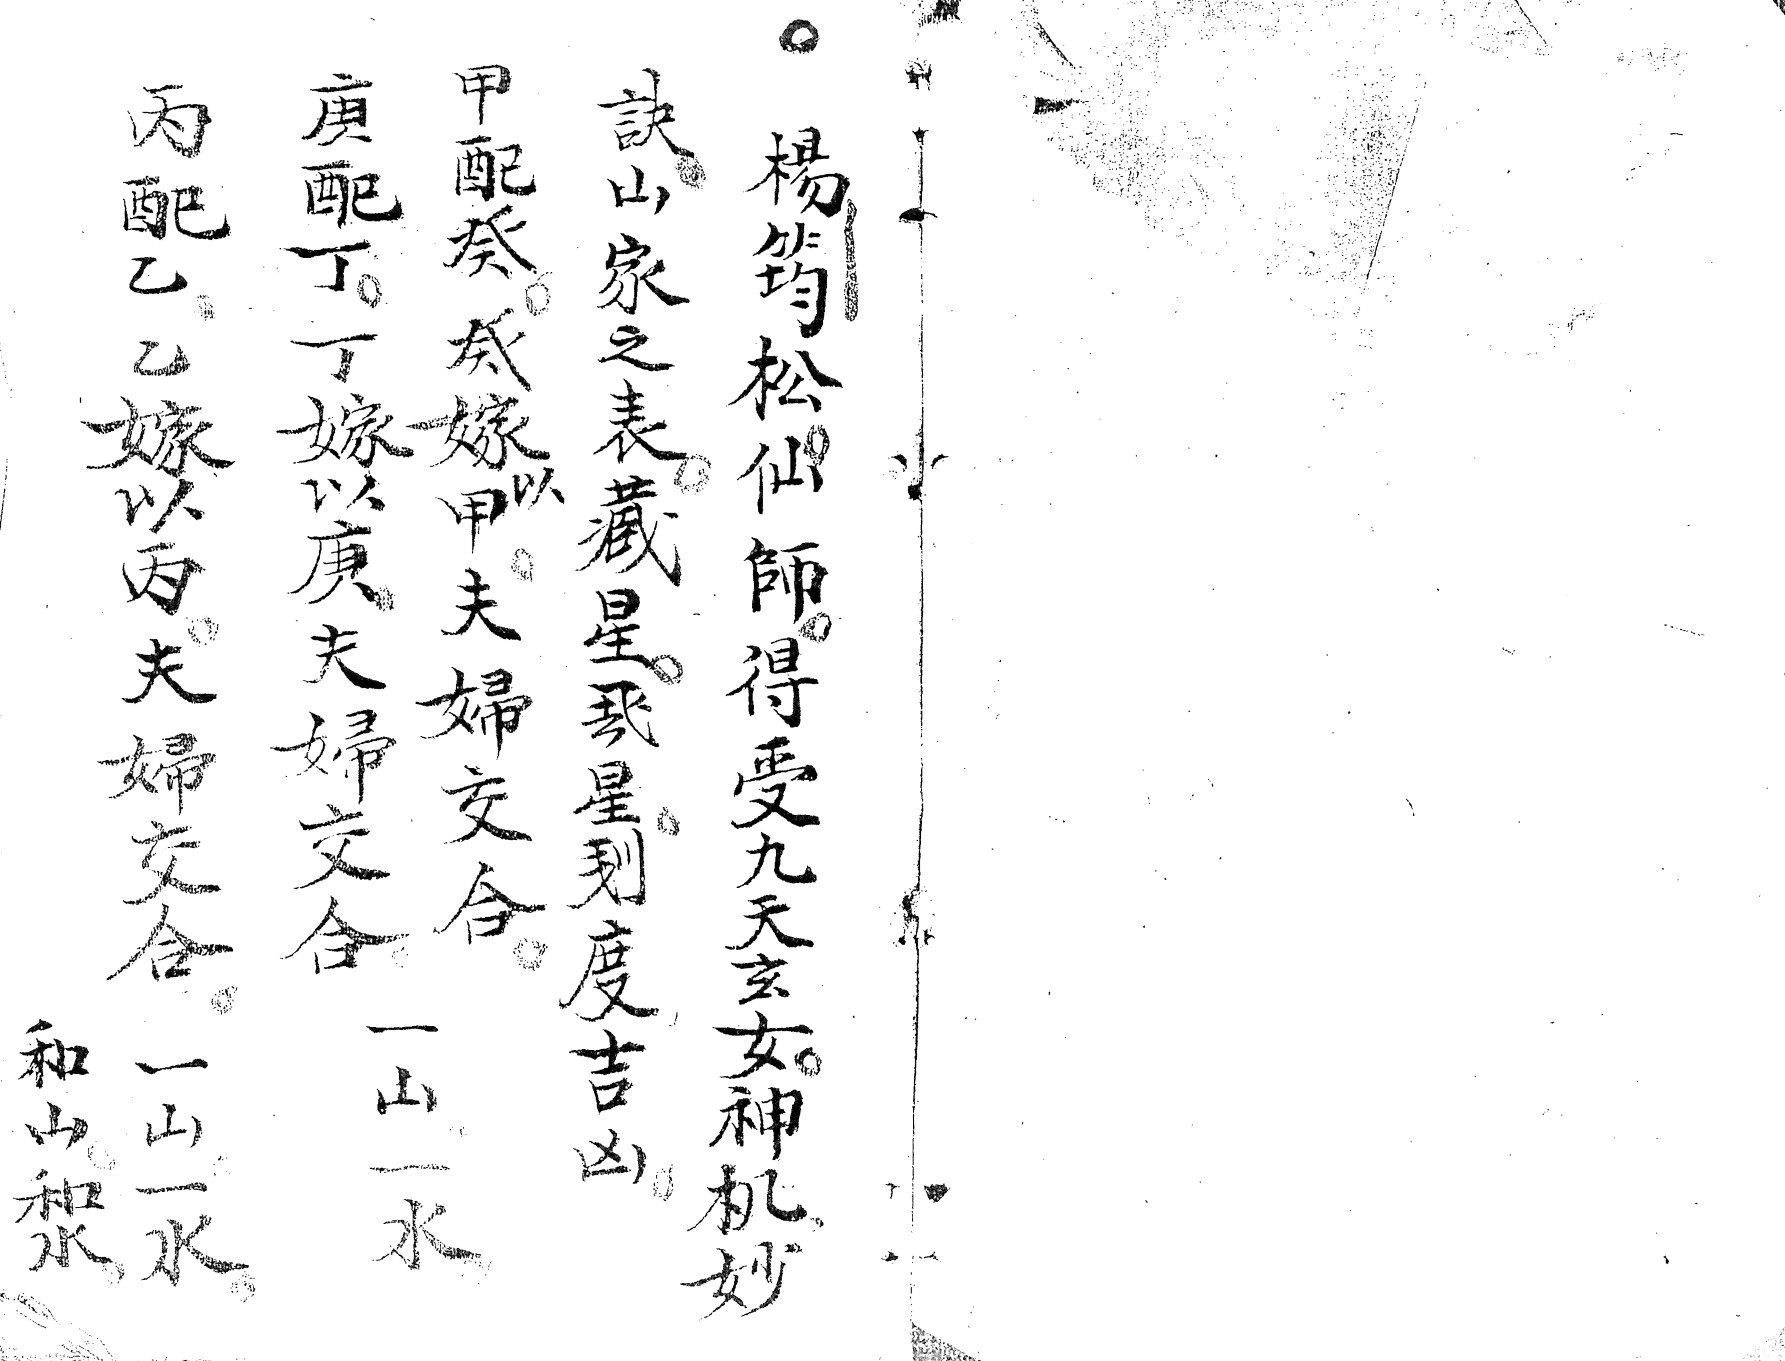 楊筠松仙師得受九天玄女神机妙
訣山家之表藏星星刻度吉凶
甲配癸癸嫁以甲夫婦交合
庚配丁丁嫁以庚夫婦交合
一山一水
丙配乙乙嫁以丙夫婦交合
一山一水
和山和水